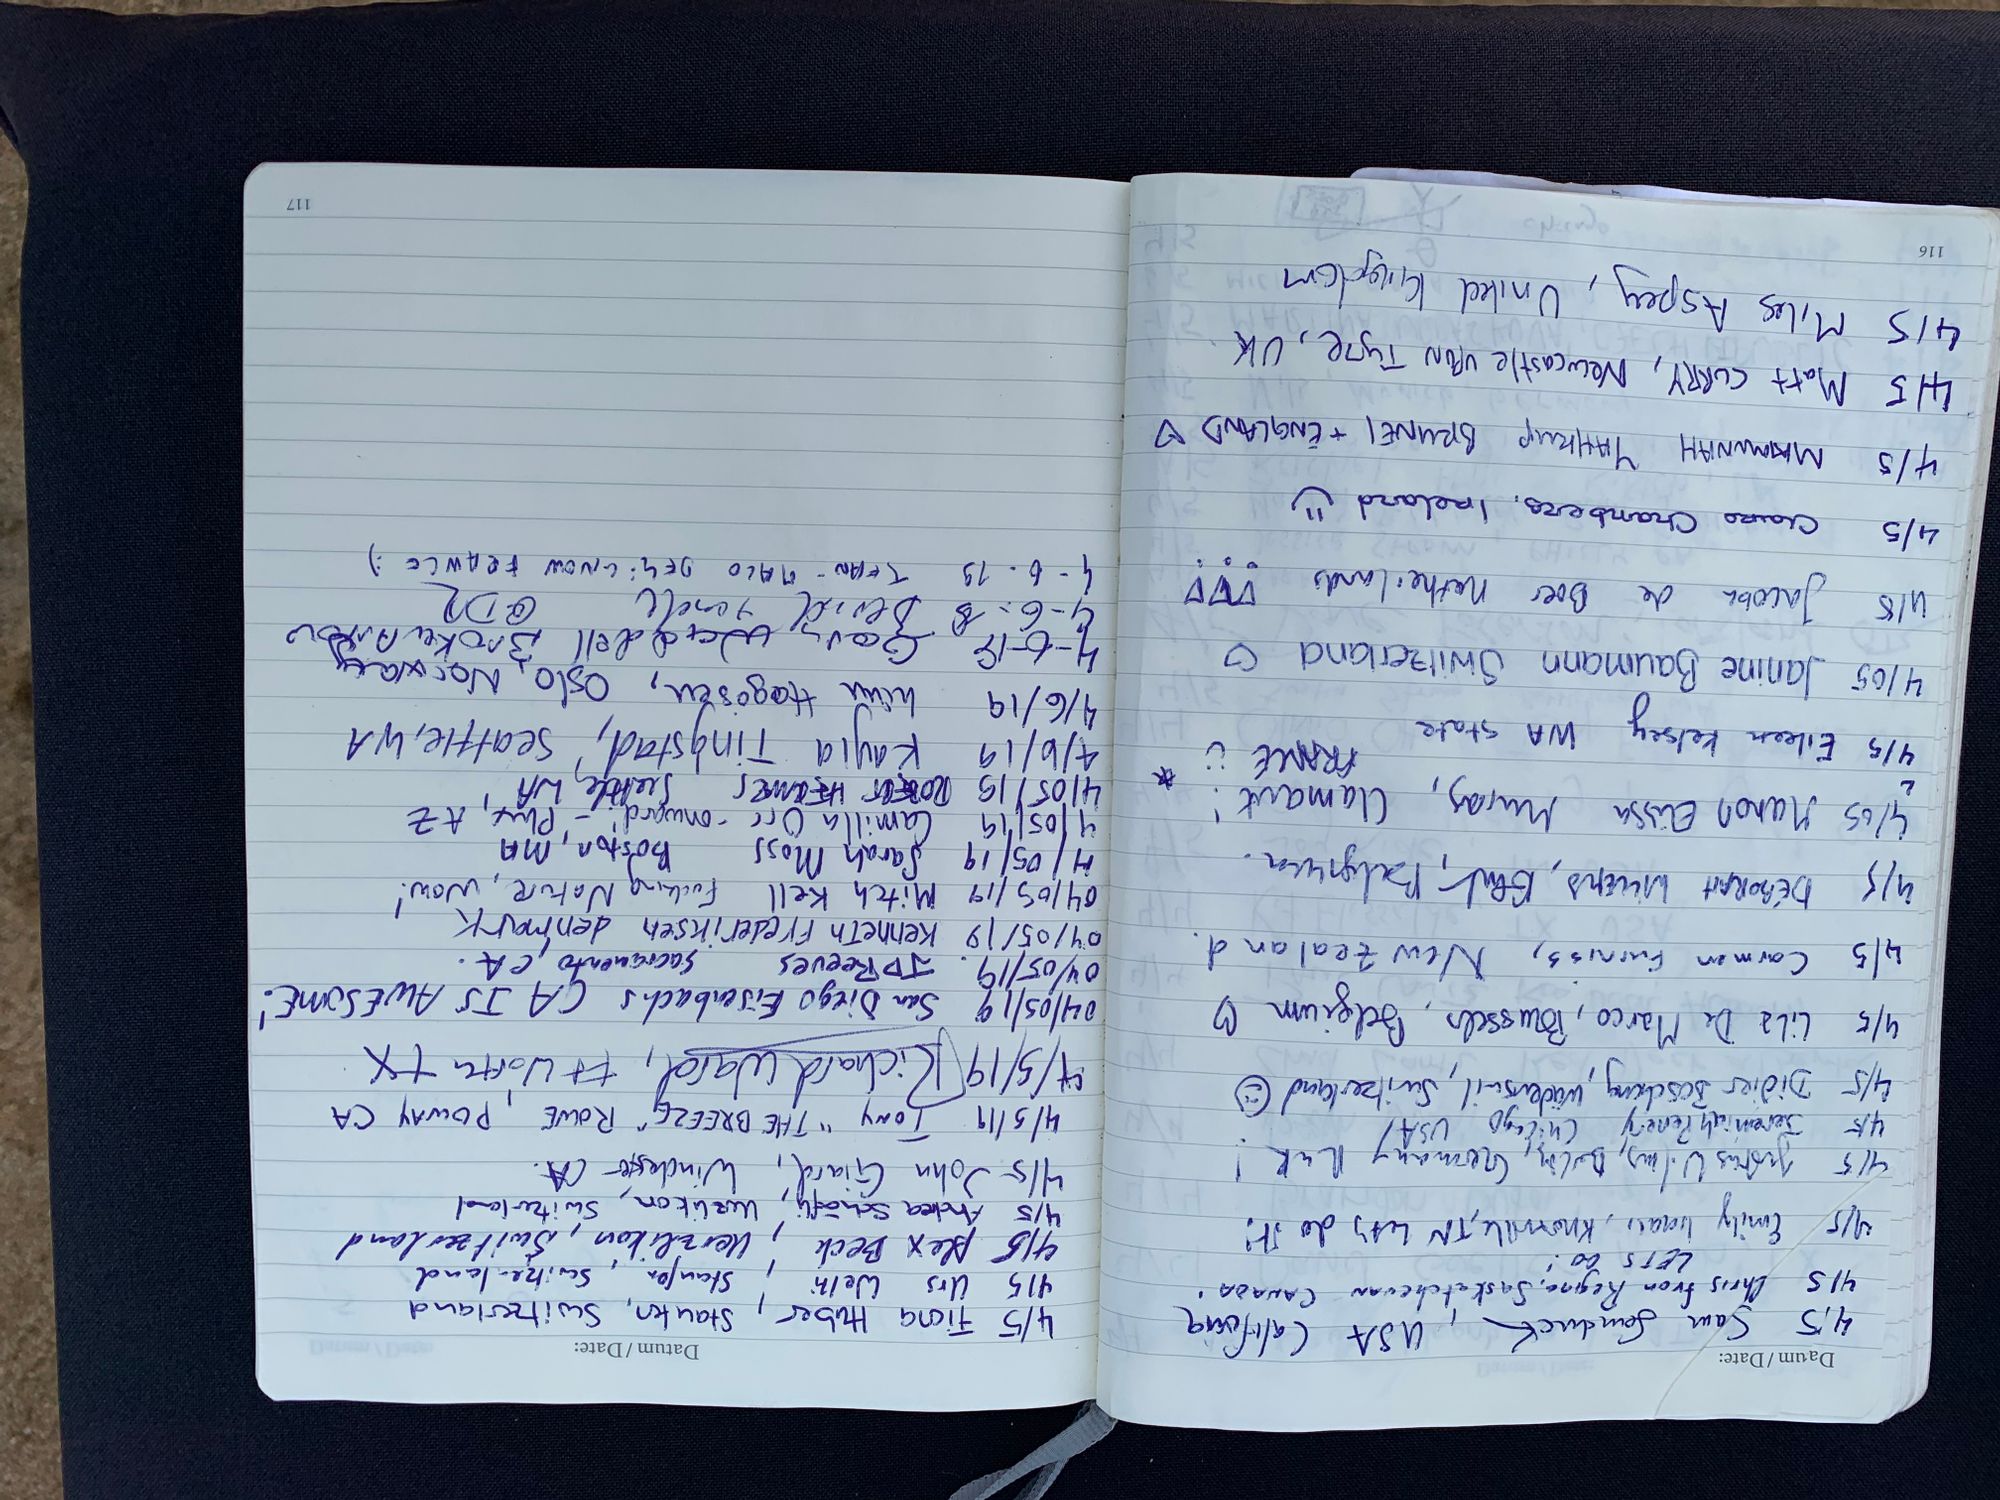 Datum / Date:
4/5 Sam , USA California
4/5 Chris from Regina, Saskatchewan CANADA!
LETS GO!
4/5 Emily , Knoxville, TN Lets do it!
4/5 Justus Wilms, Berlin, Germany !
4/5 Jeremiah Penery Chicago USA!
4/5 Didier , Wädenswil, Switzerland ☺
4/5 Lila De Marco, Brussels, Belgium ♡
4/5 Carmen Furniss, New Zealand.
4/5 DEBORAH WILLEMS, , Belgium.
4/05 Manon Elissa , Clamart!
FRANCE
4/5 Eileen Kelsey WA state
4/05 Janine Baumann Switzerland ♡
4/5 Jacoba de Boer Netherlands
4/5 Chambers, Ireland
4/5 BRUNEI + ENGLAND ♡
4/5 Matt CURRY, Newcastle upon Tyne, UK
4/5 Miles Aspery, United Kingdom
116
Datum / Date:
4/5 Fiona Huber, Staufen, Switzerland
4/5 Urs Welti, Staufen, Switzerland
4/5 Alex Beck, Uerzlikon, Switzerland
4/5 Andrea Schäfli, Uerzlikon, Switzerland
4/5 John Giard, CA.
4/5/19 Tony "THE BREEZE" ROWE, POWAY CA
4/5/19 Richard Ward, Ft Worth TX
04/05/19 San Diego Eisenbachs CA IS AWESOME!
04/05/19. JD Reeves Sacramento, CA.
04/05/19 Kenneth Frederiksen denmark
04/05/19 Mitch Kell Fucking Nature, Wow!
4/05/19 Sarah Moss Boston, MA
4/05/19 Camilla Orr - onward - Phx, AZ
4/05/19 Seattle, WA
4/6/19 Kayla Tingstad, Seattle, WA
4/6/19 , Oslo, Norway
4-6-19 Gary Waddell Broken Arrow
4-6-
4-6.19 FRANCE :)
117